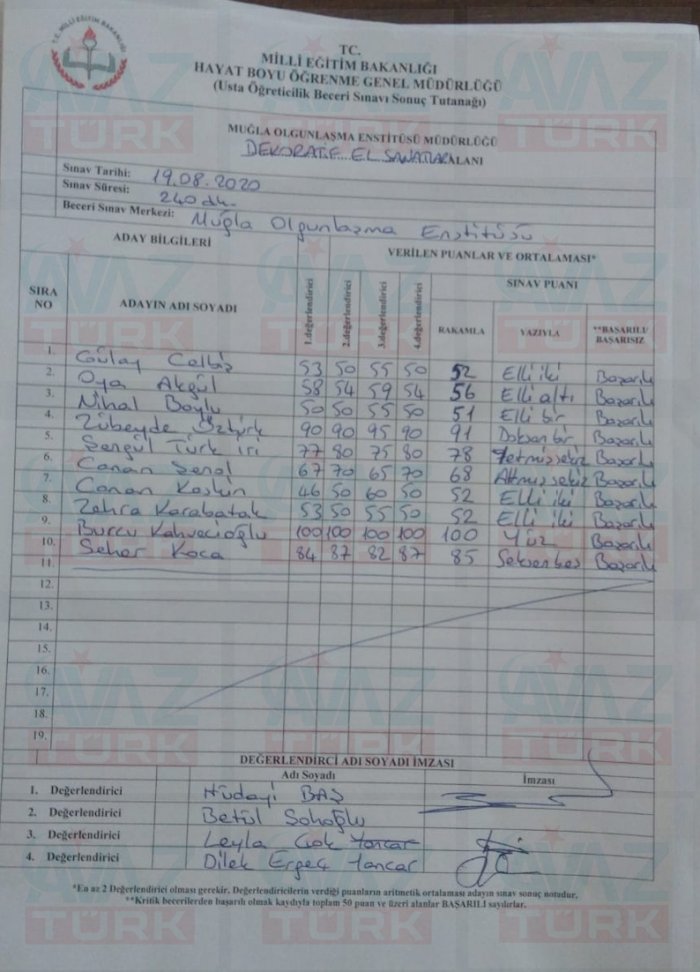 T.C. MİLLÎ EĞİTİM BAKANLIĞI
TC.
MİLLİ EĞİTİM BAKANLIĞI
HAYAT BOYU ÖĞRENME GENEL MÜDÜRLÜĞÜ
(Usta Öğreticilik Beceri Sınavı Sonuç Tutanağı)
MUĞLA OLGUNLAŞMA ENSTİTÜSÜ MÜDÜRLÜĞÜ
DEKORATİF EL SANATLARI ALANI
Sınav Tarihi: 19.08.2020
Sınav Süresi: 240 dk.
Beceri Sınav Merkezi: Muğla Olgunlaşma Enstitüsü
ADAY BİLGİLERİ VERİLEN PUANLAR VE ORTALAMASI*
SIRA NO ADAYIN ADI SOYADI 1.değerlendirici 2.değerlendirici 3.değerlendirici 4.değerlendirici SINAV PUANI
RAKAMLA YAZIYLA **BAŞARILI/ BAŞARISIZ
1. Gülay 53 50 55 50 52 Elli iki Başarılı
2. Oya Akgül 58 54 59 54 56 Elli altı Başarılı
3. Nihal Boylu 50 50 55 50 51 Elli bir Başarılı
4. Zübeyde Öztürk 90 90 95 90 91 Doksan bir Başarılı
5. Şengül Türk iri 77 80 75 80 78 Yetmişsekiz Başarılı
6. Canan Şenol 67 70 65 70 68 Altmışsekiz Başarılı
7. Canan Keskin 46 50 60 50 52 Elli iki Başarılı
8. Zehra Karabatak 53 50 55 50 52 Elli iki Başarılı
9. Burcu Kahvecioğlu 100 100 100 100 100 Yüz Başarılı
10. Seher Koca 84 87 82 87 85 Seksenbeş Başarılı
11.
12.
13.
14.
15.
16.
17.
18.
19.
DEĞERLENDİRCİ ADI SOYADI İMZASI
Adı Soyadı İmzası
1. Değerlendirici Hüdayi BAŞ
2. Değerlendirici Betül
3. Değerlendirici Leyla Çok Yancar
4. Değerlendirici Dilek Ergeç Yancar
*En az 2 Değerlendirici olması gerekir. Değerlendiricilerin verdiği puanların aritmetik ortalaması adayın sınav sonuç notudur.
**Kritik becerilerden başarılı olmak kaydıyla toplam 50 puan ve üzeri alanlar BAŞARILI sayılırlar.
AVAZ TÜRK